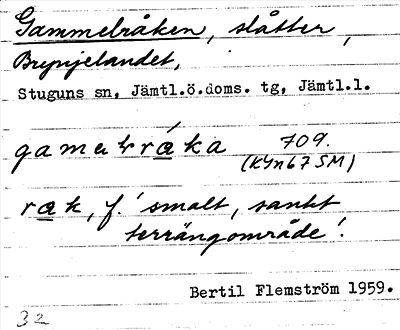 Gammelråken, slåtter,
Brynjelandet,
Stuguns sn, Jämtl.ö.doms. tg, Jämtl.l.
709.
(KYn67SM)
råk, f. 'smalt, sankt
terrängområde'.
Bertil Flemström 1959.
32